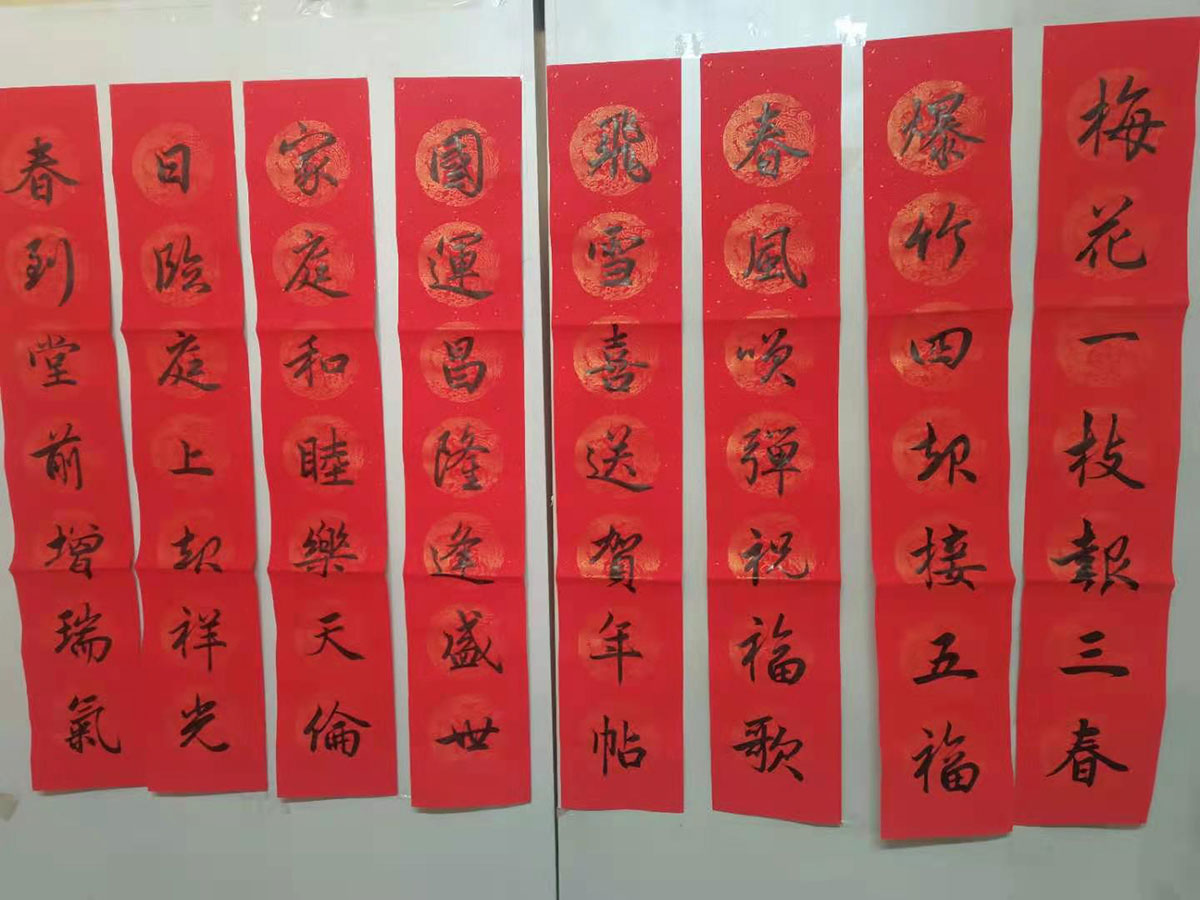 梅花一枝報三春
爆竹四起接五福
春風咲彈祝福歌
飛雪喜送賀年帖
國運昌隆逢盛世
家庭和睦樂天倫
日臨庭上起祥光
春到堂前增瑞氣